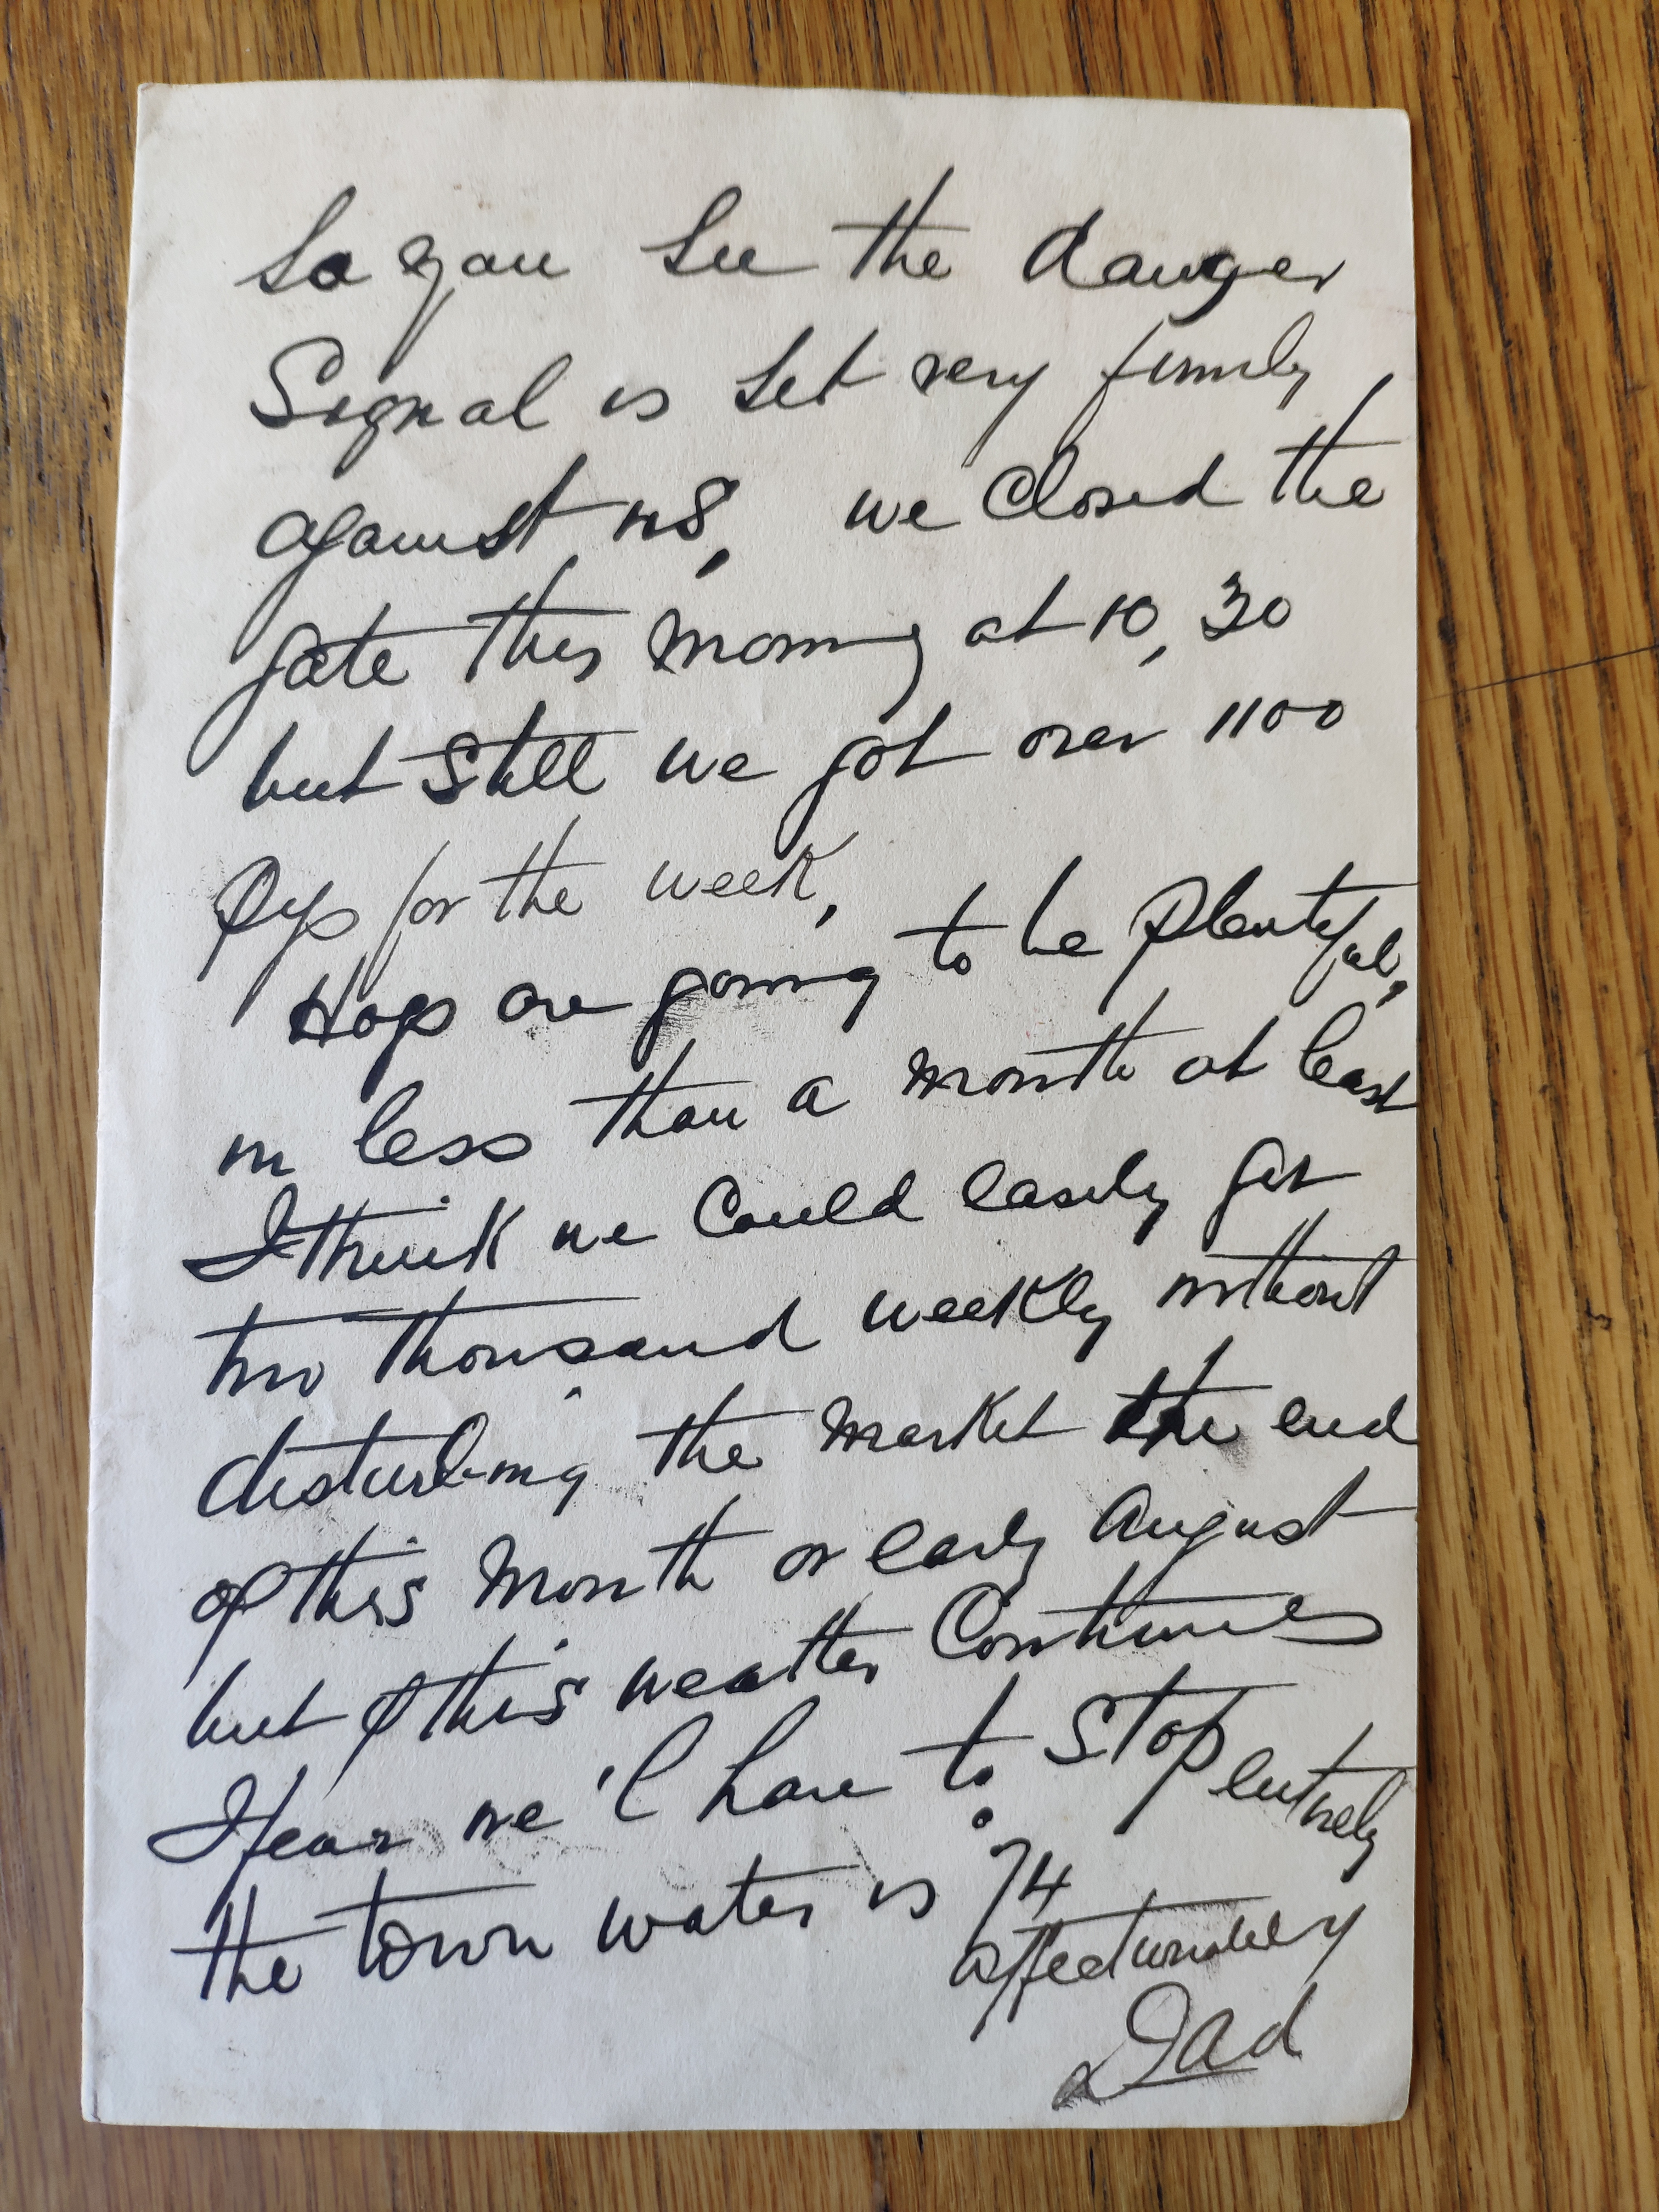 So you see the danger
Signal is set very firmly
against us, we closed the
gate this morning at 10,30
but still we got over 1100
Pgs for the week,
Hogs are going to be plentyful,
in less than a month at least
I think we could easily get
two thousand weekly without
disturbing the market the end
of this month or early August
but if this weather continues
I fear we'l have to stop entirely
the town water is 74°
affectionately
Dad